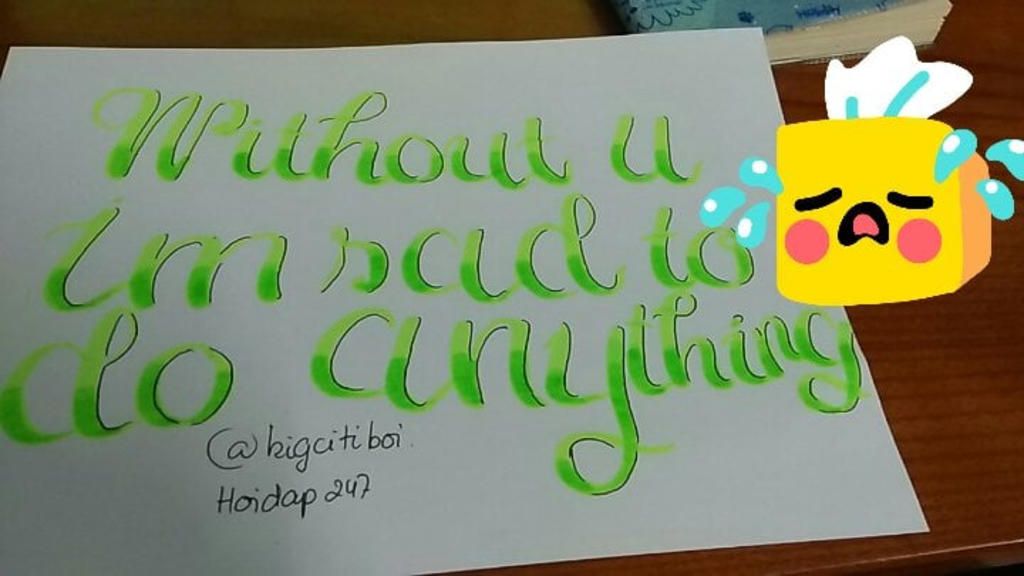 Without u
im sad to
do anything
@bigcitiboi.
Hoidap 247